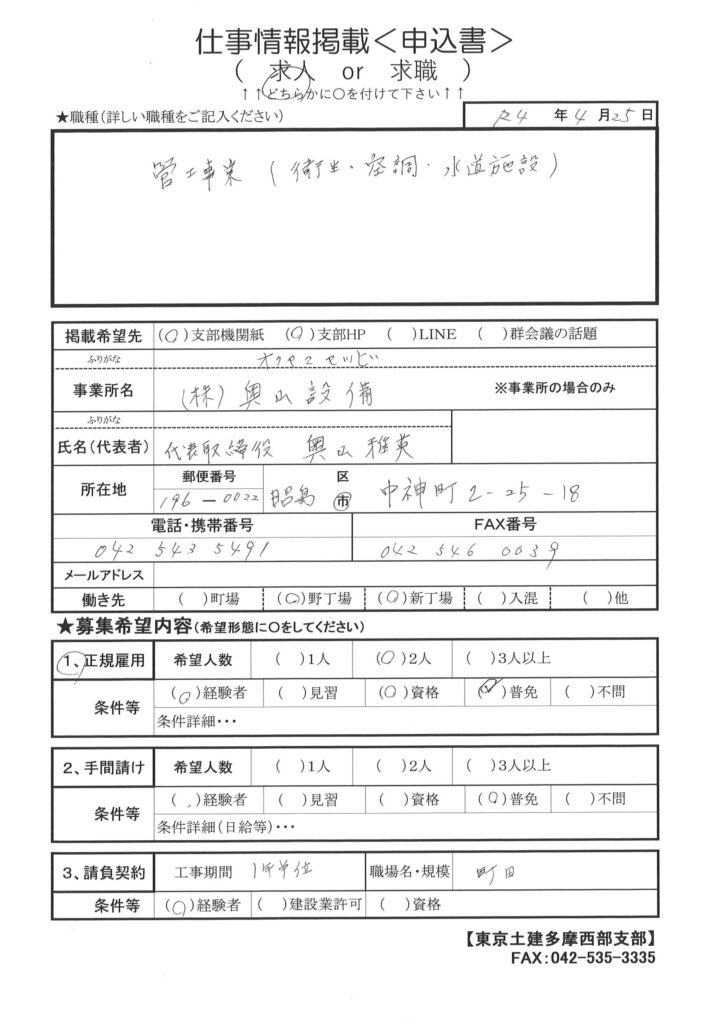 仕事情報掲載＜申込書＞
（　求人　or　求職　）
↑↑どちらかに〇を付けて下さい↑↑
★職種（詳しい職種をご記入ください）　R4 年 4 月 25 日
管工事業（衛生・空調・水道施設）
掲載希望先　(〇)支部機関紙　(〇)支部HP　(　)LINE　(　)群会議の話題
ふりがな　オクヤマセツビ
事業所名　(株)奥山設備　※事業所の場合のみ
ふりがな
氏名（代表者）　代表取締役　奥山雅英
所在地　郵便番号　196－0022　昭島　区　市　中神町2-25-18
電話・携帯番号　FAX番号
042 543 5491　042 546 0039
メールアドレス
働き先　(　)町場　(〇)野丁場　(〇)新丁場　(　)入混　(　)他
★募集希望内容（希望形態に〇をしてください）
1、正規雇用　希望人数　(　)1人　(〇)2人　(　)3人以上
条件等　(〇)経験者　(　)見習　(〇)資格　(✓)普免　(　)不問
条件詳細・・・
2、手間請け　希望人数　(　)1人　(　)2人　(　)3人以上
条件等　(　)経験者　(　)見習　(　)資格　(〇)普免　(　)不問
条件詳細（日給等）・・・
3、請負契約　工事期間　1年単位　職場名・規模　町田
条件等　(〇)経験者　(　)建設業許可　(　)資格
【東京土建多摩西部支部】
FAX：042-535-3335